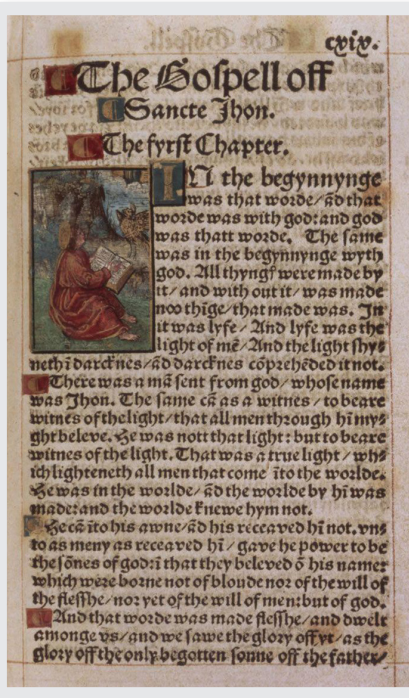 cxix.
The Gospell off
Sancte Jhon.
The fyrst Chapter.
IN the begynnynge
was that worde/ ãd that
worde was with god: and god
was thatt worde. The same
was in the begynnynge wyth
god. All thyngs were made by
it/ and with out it/ was made
noo thĩge/ that made was. In
it was lyfe/ And lyfe was the
light of mẽ/ And the light shy-
neth ĩ darcknes/ ãd darcknes cõprehẽded it not.
There was a mã sent from god/ whose name
was Jhon. The same cã as a witnes/ to beare
witnes of the light/ that all men through hĩ my-
ght beleve. He was nott that light: but to beare
witnes of the light. That was a true light/ wh-
ich lighteneth all men that come ĩto the worlde.
He was in the worlde/ ãd the worlde by hĩ was
made: and the worlde knewe hym not.
He cã ĩto his awne/ ãd his receaved hĩ not. vn-
to as meny as receaved hĩ/ gave he power to be
the sõnes of god: ĩ that they beleved õ his name:
which were borne not of bloude nor of the will of
the flesshe/ nor yet of the will of men: but of god.
And that worde was made flesshe/ and dwelt
amonge vs/ and we sawe the glory off yt/ as the
glory off the only begotten sonne off the father/